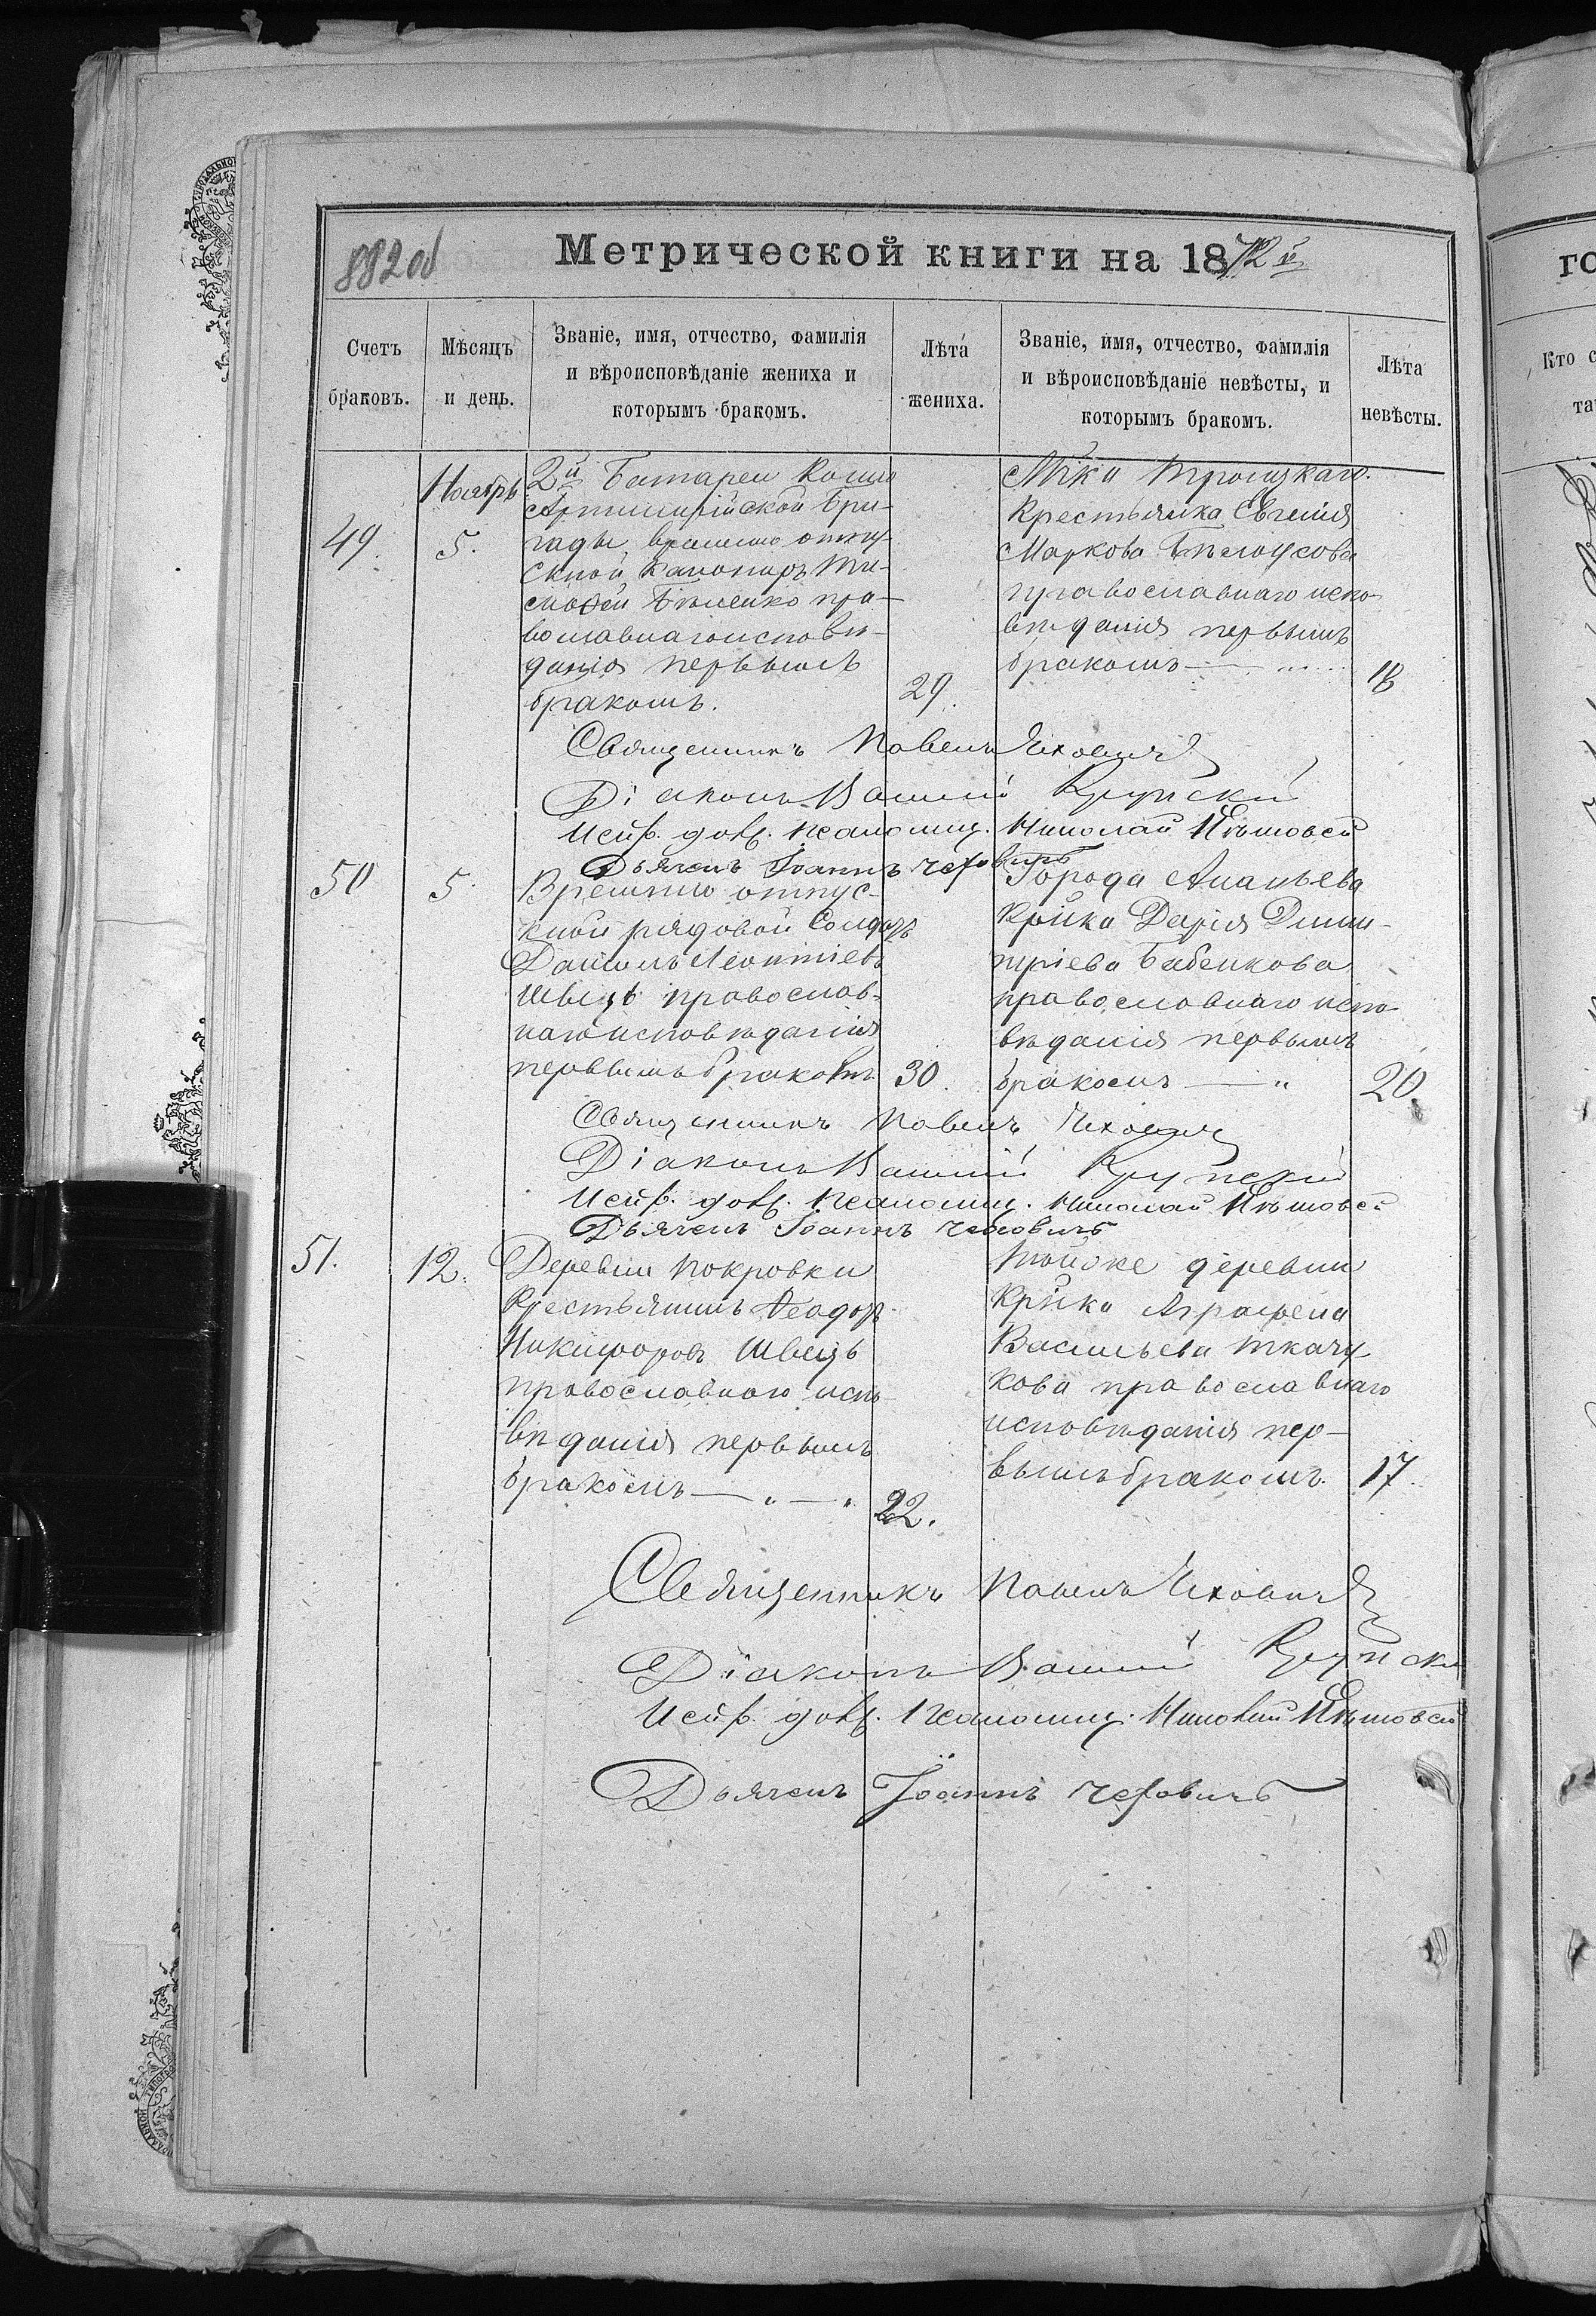 882 об
Метрической книги на 1872й
го
Счетъ браковъ.
Мѣсяцъ и день.
Званіе, имя, отчество, фамилія
и вѣроисповѣданіе жениха и
которымъ бракомъ.
Лѣта жениха.
Званіе, имя, отчество, фамилія
и вѣроисповѣданіе невѣсты, и
которымъ бракомъ.
Лѣта невѣсты.
Кто с
та
Ноябрь
49. 5.
2й Батареи Конно
Артиллерійской Бри-
гады, временно отпу-
скной Канониръ Ти-
моѳей Бѣленко пра-
вославнаго исповѣ-
данія первымъ
бракомъ.
29.
Мѣка Троицкаго
Крестьянка Евгенія
Маркова Бѣлоусова
православнаго испо-
вѣданія первымъ
бракомъ — „
18
Священникъ Павелъ Яхович
Діаконъ Василій Крупскій
Испр. долж. псаломщ. Николай
Дьячекъ Іоаннъ Чехович
50 5.
Временно отпус-
кной рядовой Солдатъ
Даніилъ Леонтіевъ
Швецъ православ-
наго исповѣданія
первымъ бракомъ
30.
Города Ананьева
Крйка Дарія Дими-
тріева Бабенкова
православнаго испо-
вѣданія первымъ
бракомъ — „
20
Священникъ Павелъ Яхович
Діаконъ Василій Крупскій
Испр. долж. псаломщ. Николай
Дьячекъ Іоаннъ Чехович
51. 12.
Деревни Покровки
Крестьянинъ Ѳеодоръ
Никифоровъ Швецъ
православнаго испо-
вѣданія первымъ
бракомъ — „ — „
22.
Той же деревни
Крйка Аграфена
Васильева Ткачу-
кова православнаго
исповѣданія пер-
вымъ бракомъ.
17.
Священникъ Павелъ Яхович
Діаконъ Василій Крупскій
Испр. долж. псаломщ. Николай
Дьячекъ Іоаннъ Чехович